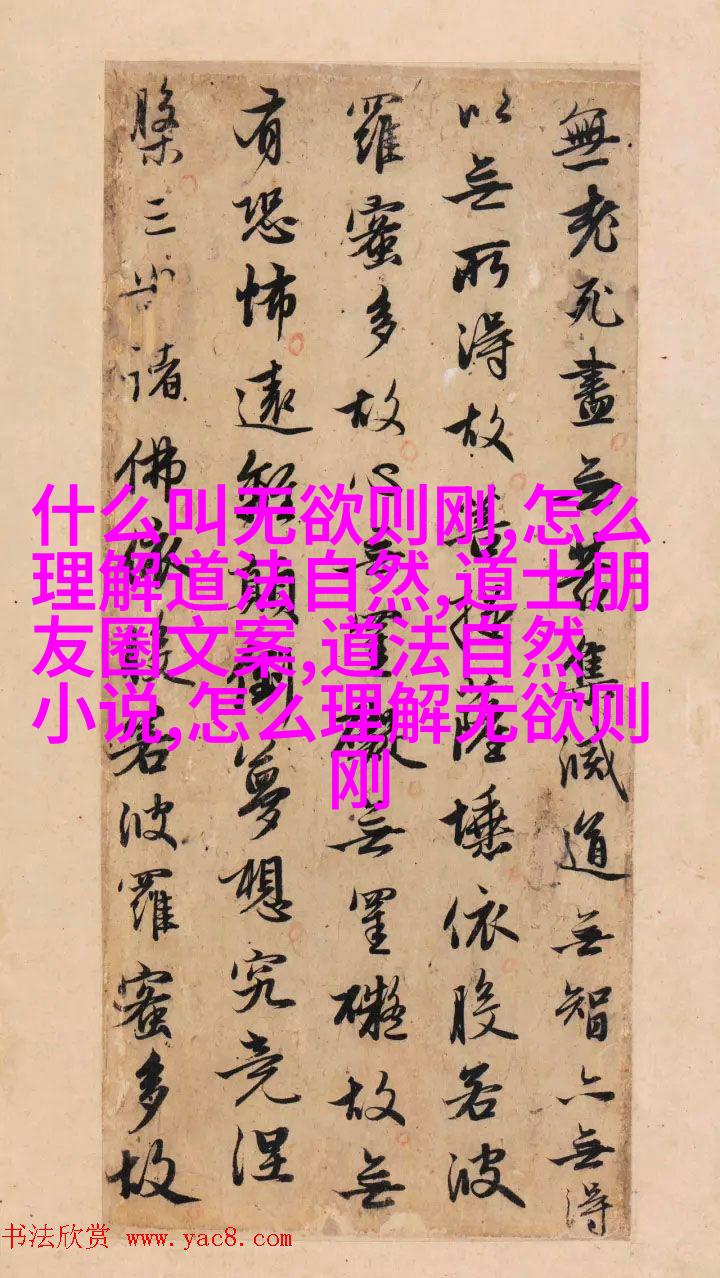 無老死盡无苦集滅道无智亦無得
以无所得故菩提薩埵依般若波
羅蜜多故心无罣礙无罣礙故無
有恐怖遠離顛倒夢想究竟涅
槃三世諸佛依般若波羅蜜多故
什么叫无欲则刚,怎么
理解道法自然,道士朋
友圈文案,道法自然
小说,怎么理解无欲则
刚
书法欣赏 www.yac8.com